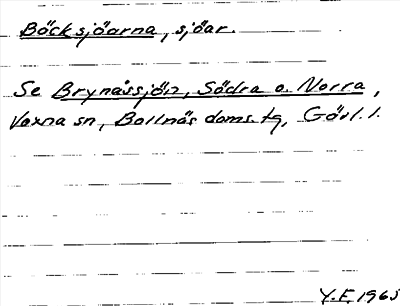 Böcksjöarna, sjöar.
Se Brynässjön, Södra o. Norra,
Voxna sn, Bollnäs doms. tg, Gävl. l.
Y.F. 1965